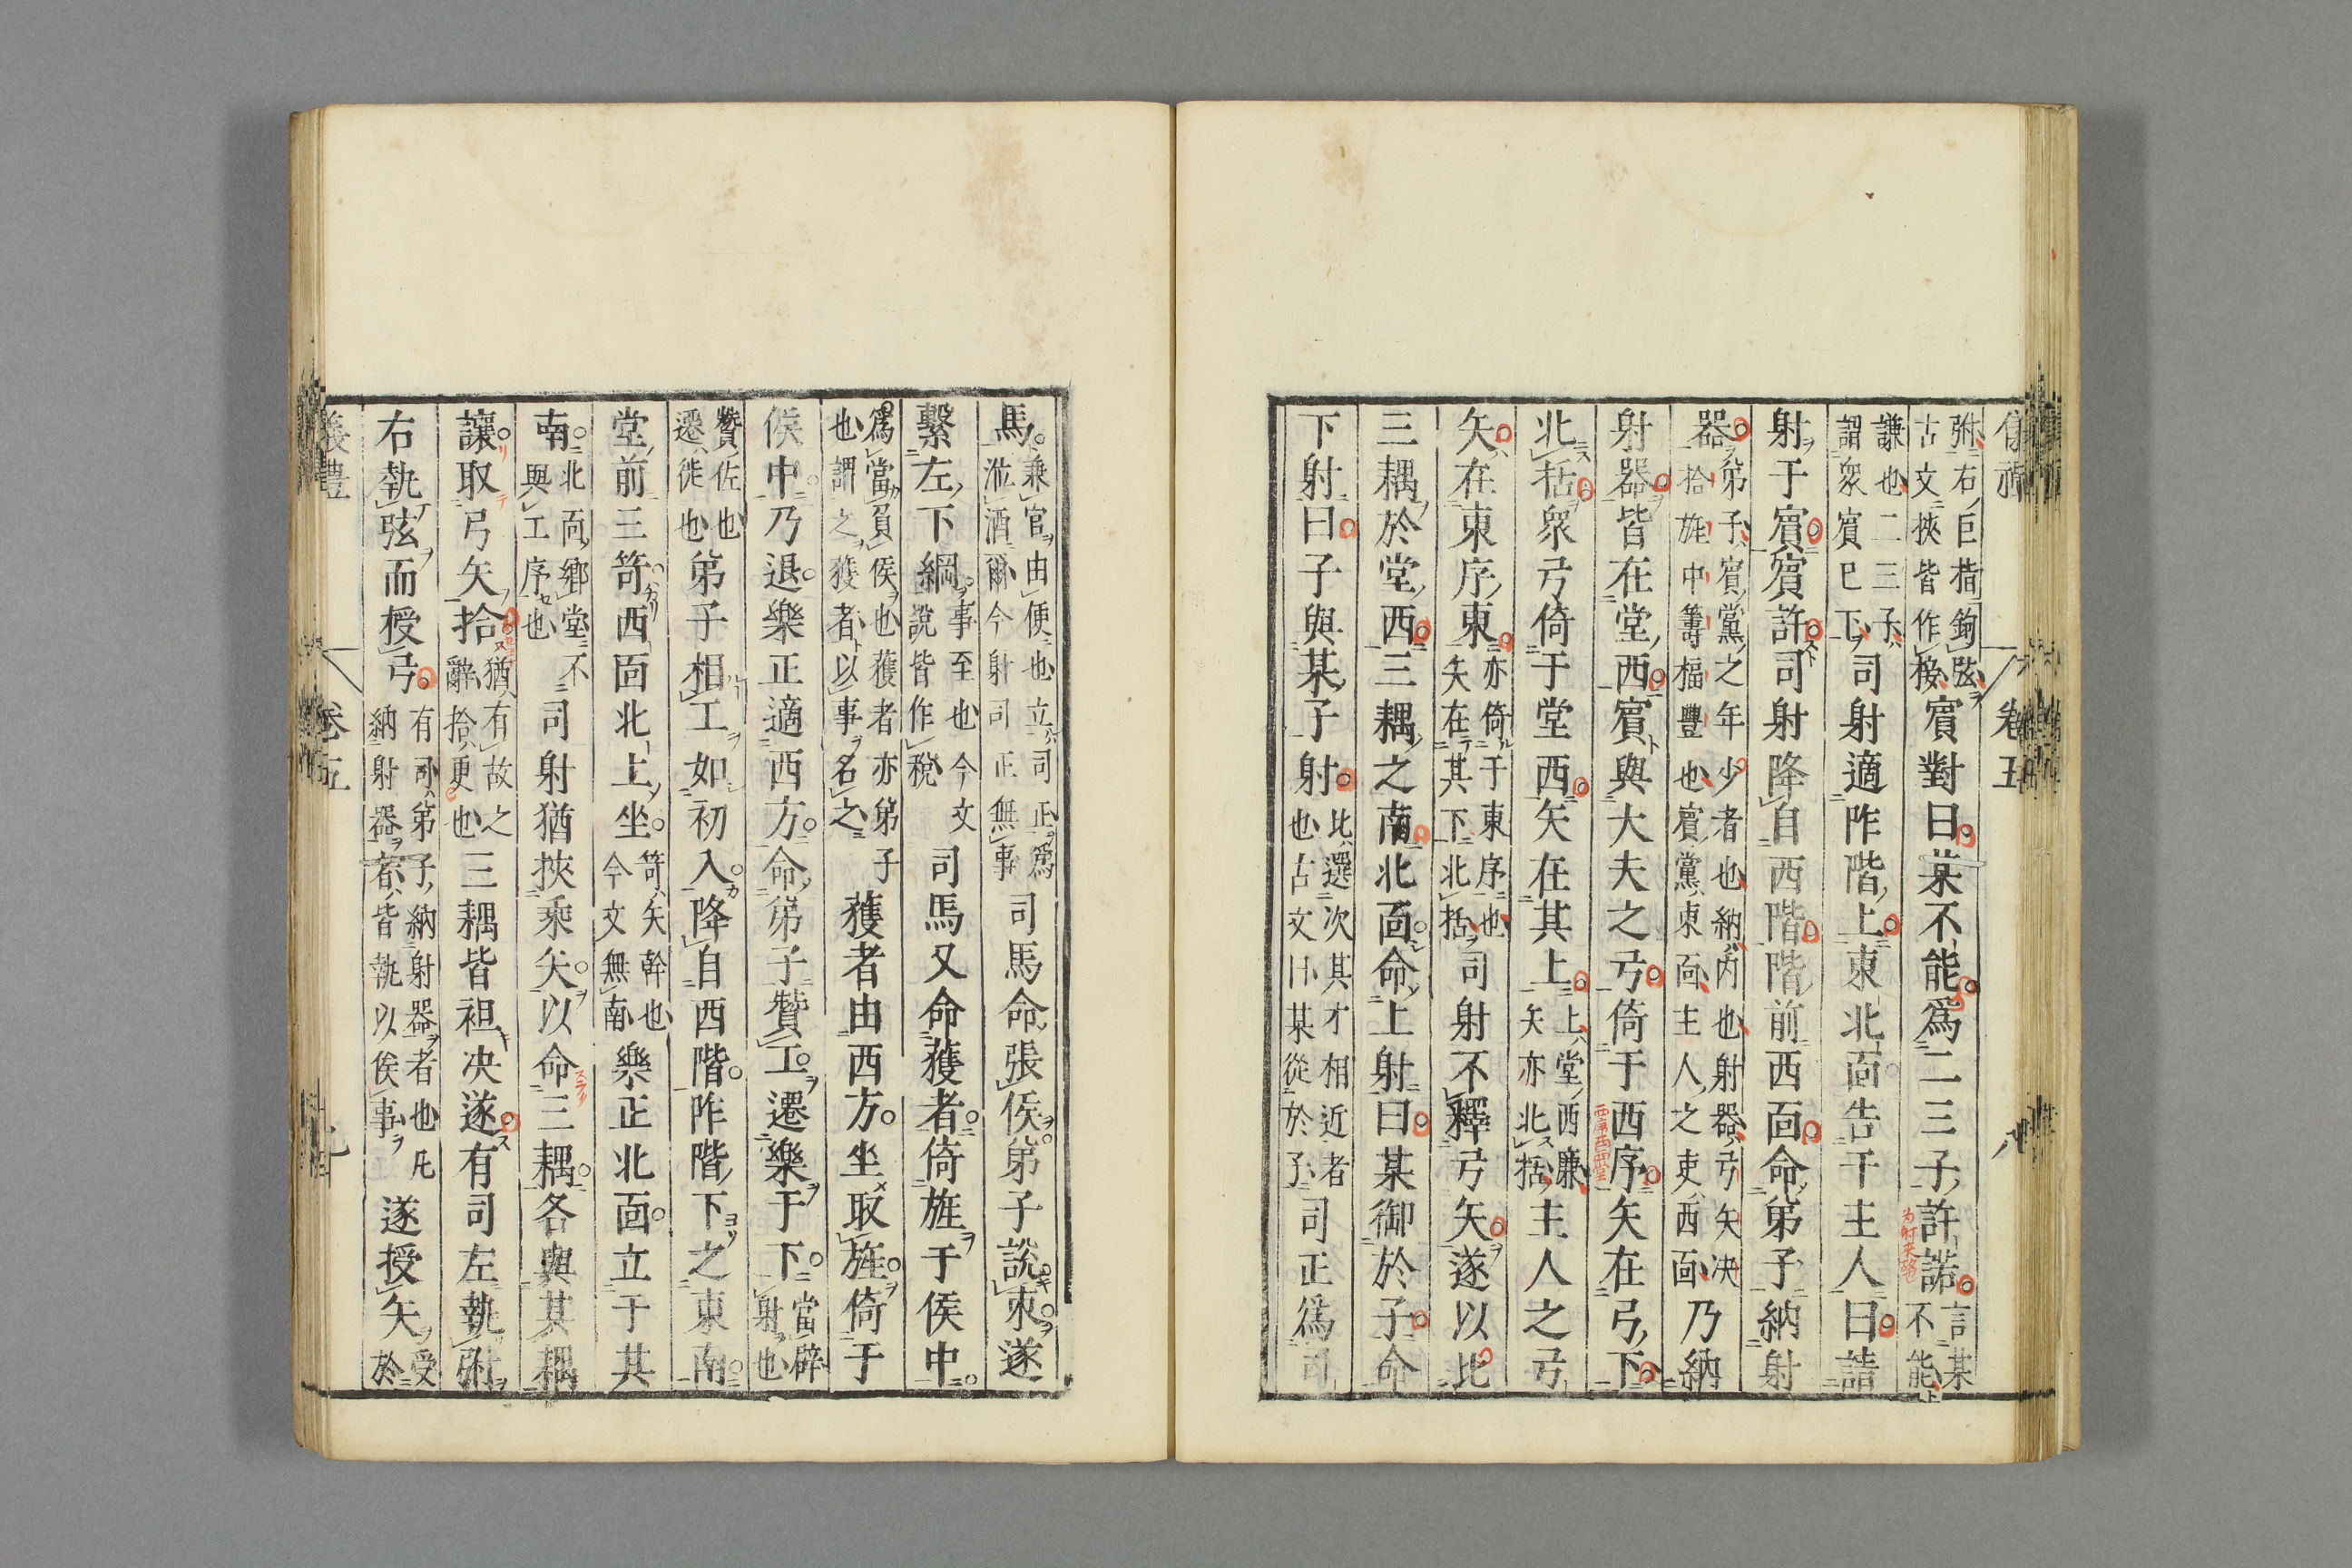 儀禮 卷五 八
弣右巨指鉤弦古文挾皆作接賓對曰某不能爲二三子許諾言某不能
謙也二三子謂衆賓已下司射適阼階上東北面告于主人曰請
射于賓賓許司射降自西階階前西面命弟子納射
器弟子賓黨之年少者也納內也射器弓矢决拾旌中籌楅豐也賓黨東面主人之吏西面乃納
射器皆在堂西賓與大夫之弓倚于西序矢在弓下
北括衆弓倚于堂西矢在其上上堂西廉矢亦北括主人之弓
矢在東序東亦倚于東序也矢在其下北括司射不釋弓矢遂以比
三耦於堂西三耦之南北面命上射曰某御於子命
下射曰子與某子射比選次其才相近者也古文曰某從於子司正爲司
馬兼官由便也立司正爲涖酒爾今射司正無事司馬命張侯弟子說束遂
繫左下綱事至也今文說皆作稅司馬又命獲者倚旌于侯中
爲當負侯也獲者亦弟子也謂之獲者以事名之獲者由西方坐取旌倚于
侯中乃退樂正適西方命弟子贊工遷樂于下當辟射也
贊佐也遷徙也弟子相工如初入降自西階阼階下之東南
堂前三笴西面北上坐笴矢幹也今文無南樂正北面立于其
南北面鄉堂不與工序也司射猶挾乘矢以命三耦各與其耦
讓取弓矢拾猶有故之辭拾更也三耦皆袒决遂有司左執弣
右執弦而授弓有司弟子納射器者也凡納射器者皆執以俟事遂授矢受於
儀豊 卷五